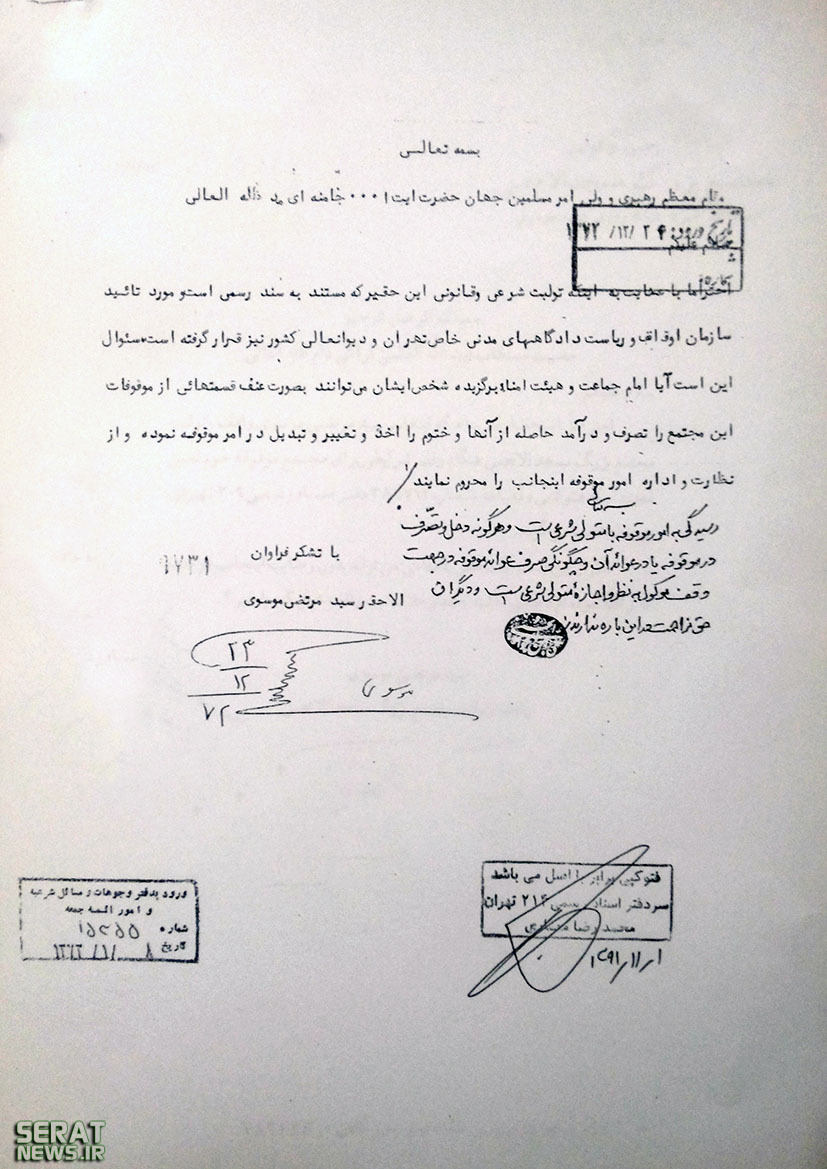 بسمه تعالی
مقام معظم رهبری و ولی امر مسلمین جهان حضرت ایت ا ۰۰۰ خامنه ای مد ظله العالی
تاریخ ورود: ۲۴ /۱۲/ ۱۳۷۲
سلام علیکم
شماره:
احتراما با عنایت به اینکه تولیت شرعی وقانونی این حقیرکه مستند به سند رسمی است و مورد تائید
سازمان اوقاف و ریاست دادگاههای مدنی خاص تهران و دیوانعالی کشور نیز قرار گرفته است، سئوال
این است آیا امام جماعت و هیئت امناء برگزیده شخص ایشان می توانند بصورت عنف قسمتهائی از موقوفات
این مجتمع را تصرف و درآمد حاصله از آنها و ختوم را اخذ و تغییر و تبدیل در امر موقوفه نموده و از
نظارت و اداره امور موقوفه اینجانب را محروم نمایند؟
بسمه تعالی
رسیدگی به امور موقوفه با متولی شرعی است و هرگونه دخل و تصرّف
در موقوفه یا در عوائد آن و چگونگی صرف عوائد موقوفه در جهت
وقف موکول به نظر و اجازهٔ متولی شرعی است و دیگران
حق مزاحمت در این باره ندارند
با تشکر فراوان
۱۷۳۱
الاحقر سید مرتضی موسوی
موسوی
۲۳
۱۲
۷۲
ورود بدفتر وجوهات و مسائل شرعیه
و امور ائمه جمعه
شماره
تاریخ
فتوکپی برابر با اصل می باشد
سردفتر اسناد رسمی ۲۱۴ تهران
محمد رضا
۱۳۹۱/۱۱/۱
SERAT
NEWS.IR